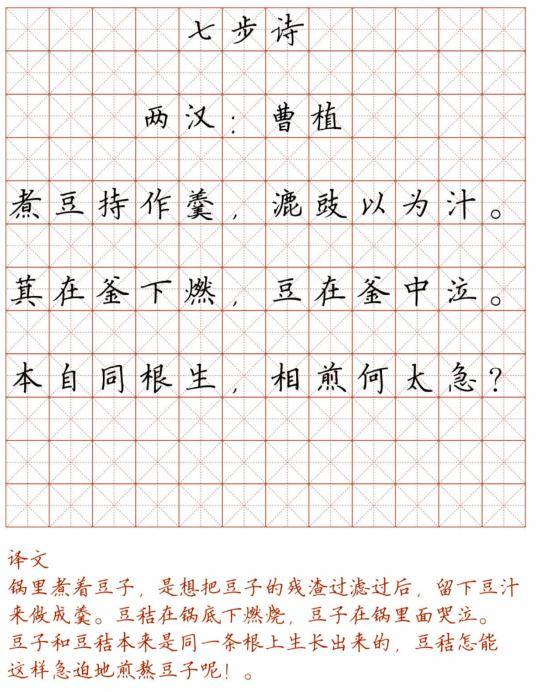 七步诗
两汉：曹植
煮豆持作羹，漉豉以为汁。
萁在釜下燃，豆在釜中泣。
本自同根生，相煎何太急？
译文
锅里煮着豆子，是想把豆子的残渣过滤过后，留下豆汁
来做成羹。豆秸在锅底下燃烧，豆子在锅里面哭泣。
豆子和豆秸本来是同一条根上生长出来的，豆秸怎能
这样急迫地煎熬豆子呢！。